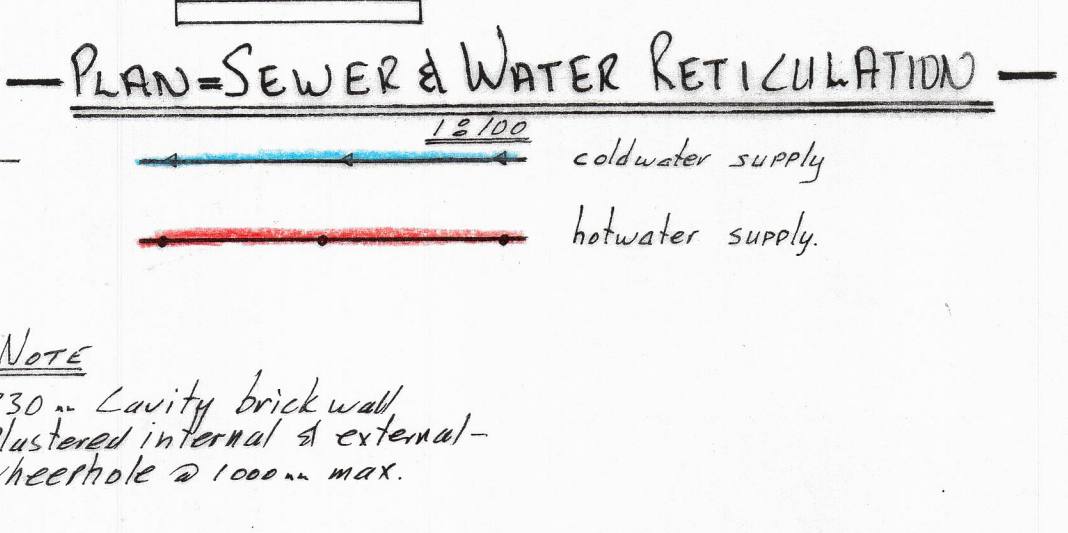 PLAN=SEWER & WATER RETICULATION
1:100
coldwater supply
hotwater supply.
NOTE
230 mm Cavity brick wall
plastered internal & external-
wheephole @ 1000mm max.